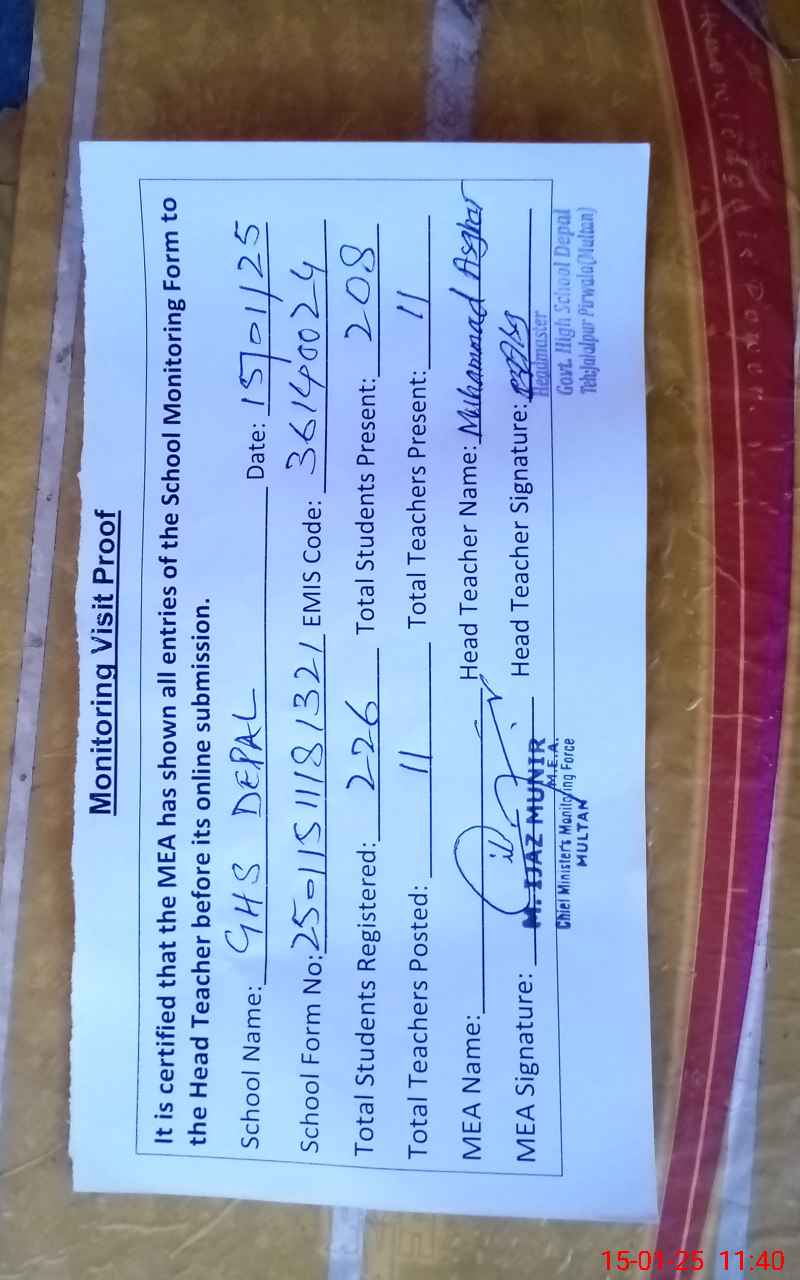 Monitoring Visit Proof
It is certified that the MEA has shown all entries of the School Monitoring Form to
the Head Teacher before its online submission.
School Name: GHS DEPAL Date: 15-01/25
School Form No: 25-0115111181321 EMIS Code: 36140024
Total Students Registered: 226 Total Students Present: 208
Total Teachers Posted: 11 Total Teachers Present: 11
MEA Name: Head Teacher Name: Muhammad Asghar
MEA Signature: Head Teacher Signature:
M. IJAZ MUNIR
M.E.A.
Chief Minister's Monitoring Force
MULTAN
Headmaster
Govt. High School Depal
Teh:Jalalpur Pirwala(Multan)
15-01-25 11:40